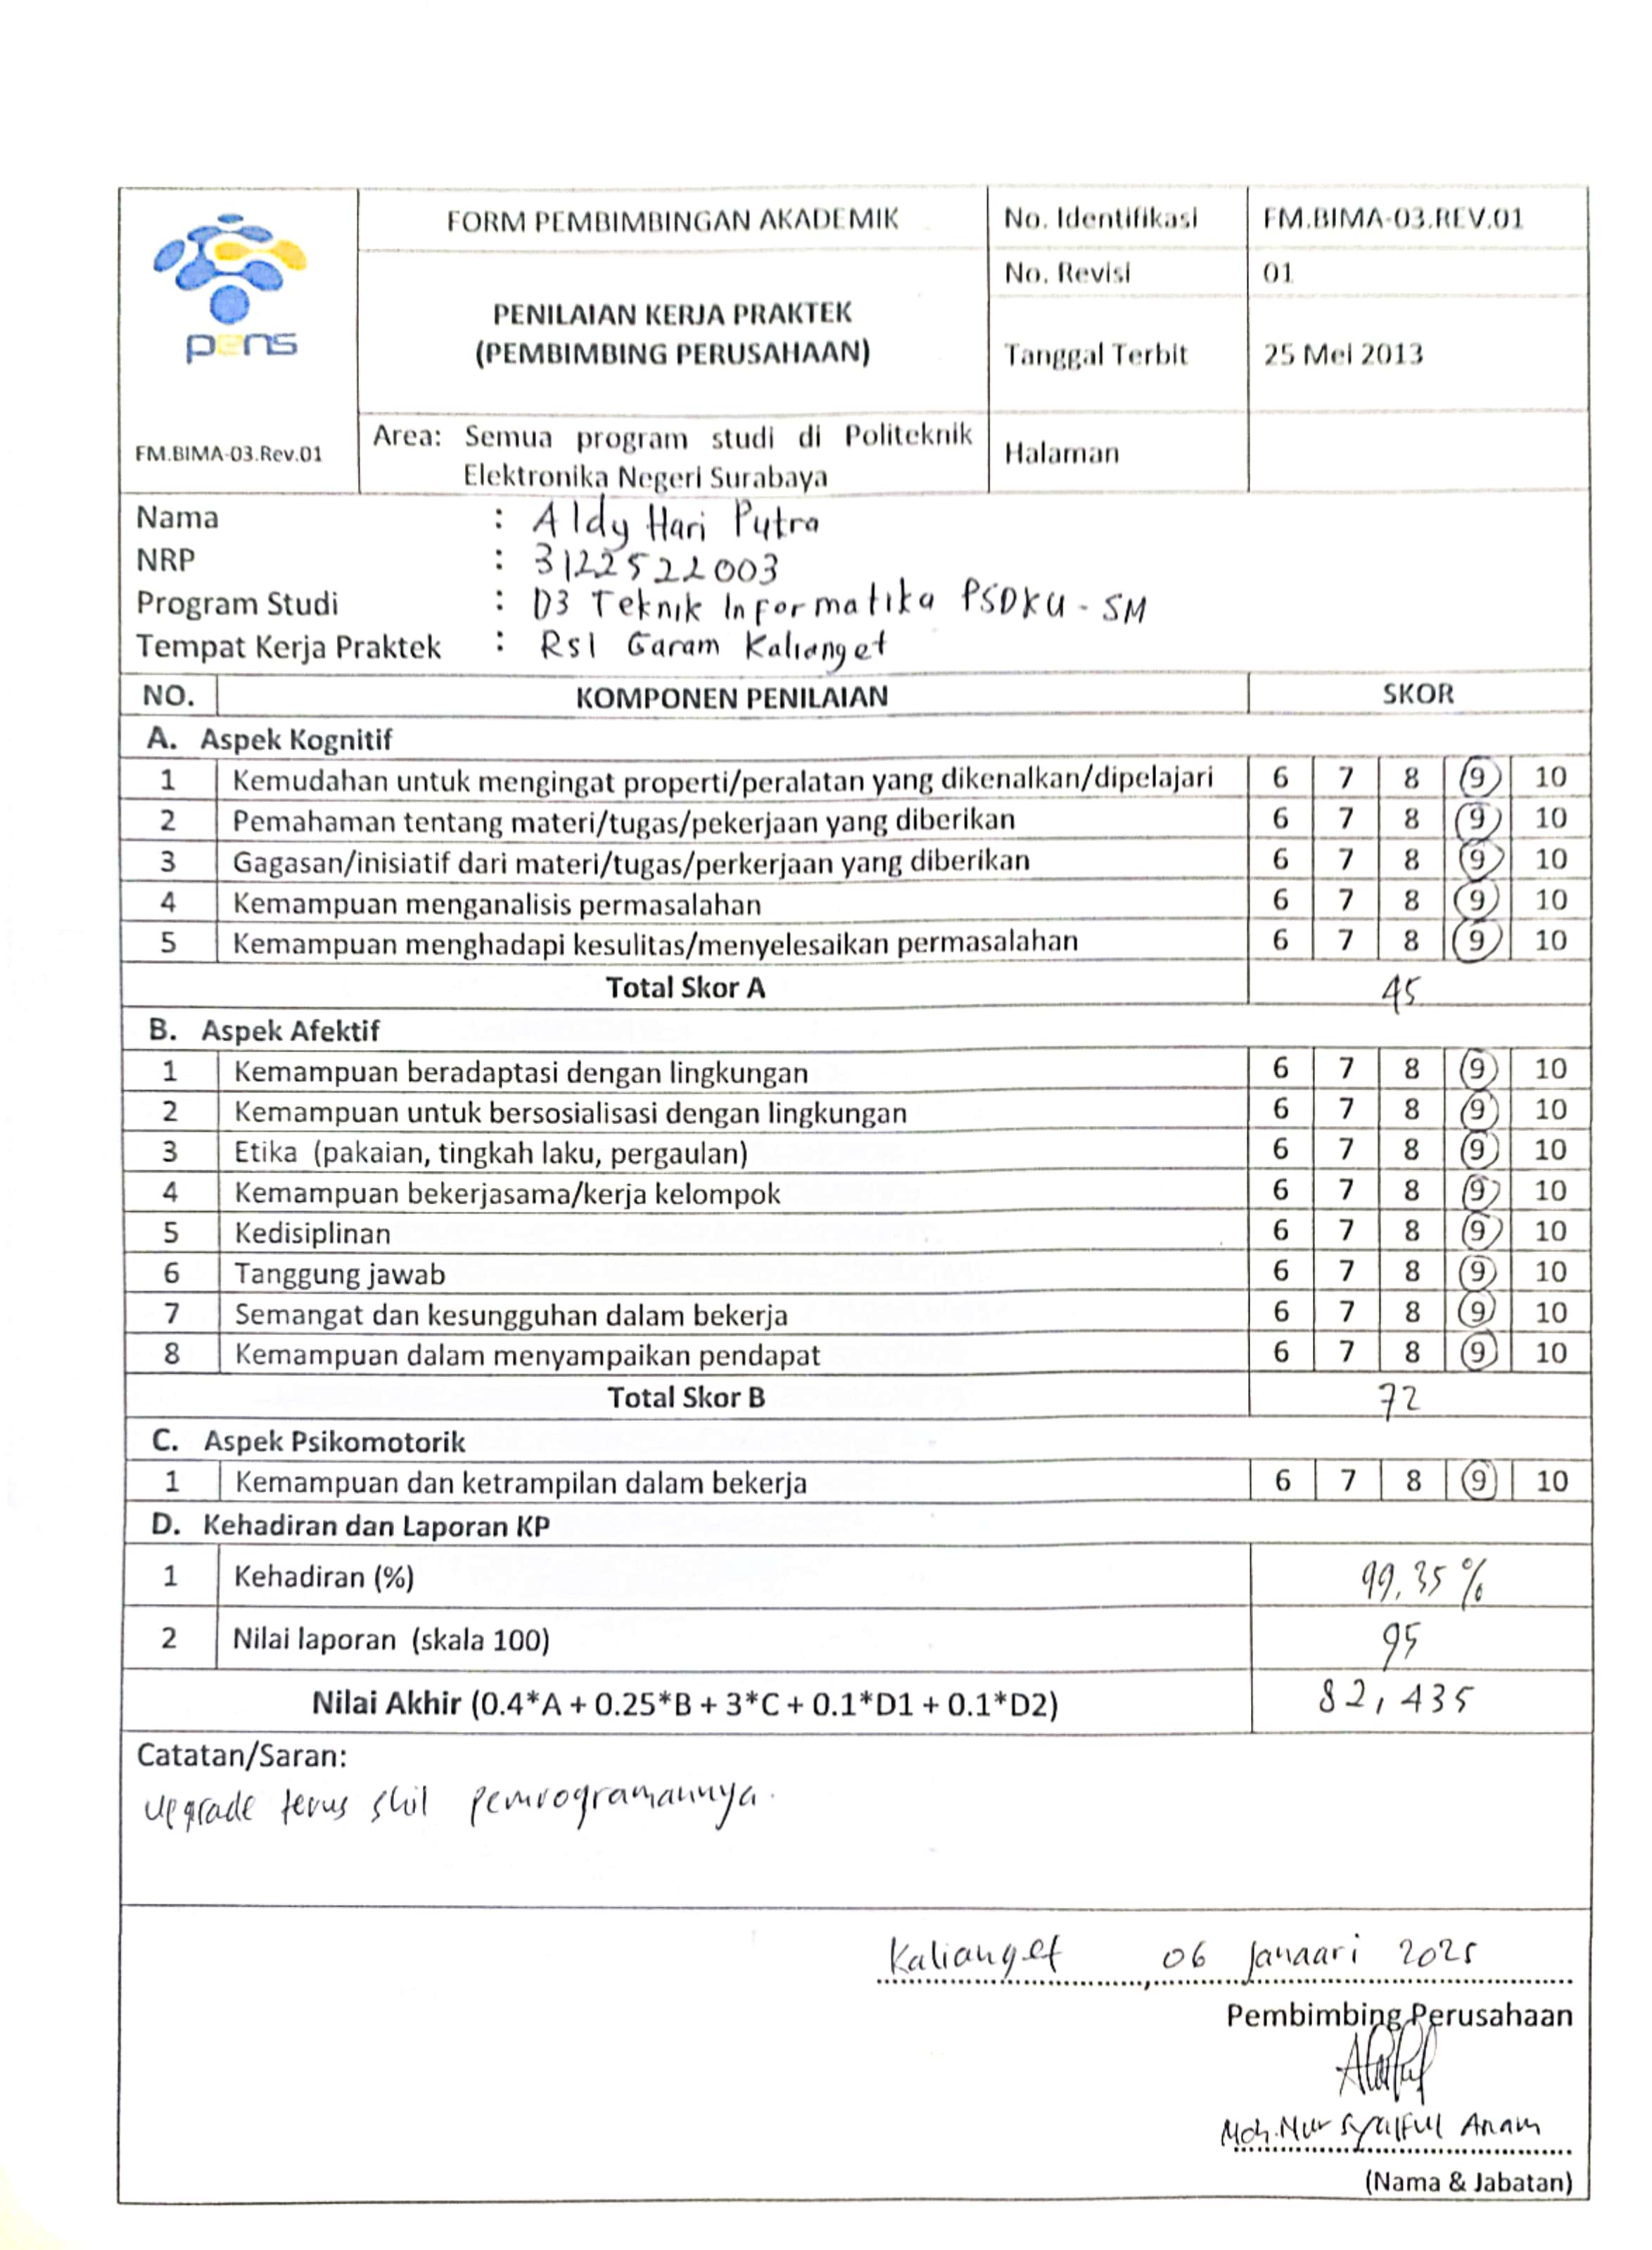 FORM PEMBIMBINGAN AKADEMIK
No. Identifikasi FM.BIMA-03.REV.01
No. Revisi 01
PENILAIAN KERJA PRAKTEK
(PEMBIMBING PERUSAHAAN)
Tanggal Terbit 25 Mei 2013
pens
FM.BIMA-03.Rev.01
Area: Semua program studi di Politeknik
Elektronika Negeri Surabaya
Halaman
Nama : Aldy Hari Putra
NRP : 3122522003
Program Studi : D3 Teknik Informatika PSDKU - SM
Tempat Kerja Praktek : RSI Garam Kalianget
NO. KOMPONEN PENILAIAN SKOR
A. Aspek Kognitif
1 Kemudahan untuk mengingat properti/peralatan yang dikenalkan/dipelajari 6 7 8 9 10
2 Pemahaman tentang materi/tugas/pekerjaan yang diberikan 6 7 8 9 10
3 Gagasan/inisiatif dari materi/tugas/perkerjaan yang diberikan 6 7 8 9 10
4 Kemampuan menganalisis permasalahan 6 7 8 9 10
5 Kemampuan menghadapi kesulitas/menyelesaikan permasalahan 6 7 8 9 10
Total Skor A 45
B. Aspek Afektif
1 Kemampuan beradaptasi dengan lingkungan 6 7 8 9 10
2 Kemampuan untuk bersosialisasi dengan lingkungan 6 7 8 9 10
3 Etika (pakaian, tingkah laku, pergaulan) 6 7 8 9 10
4 Kemampuan bekerjasama/kerja kelompok 6 7 8 9 10
5 Kedisiplinan 6 7 8 9 10
6 Tanggung jawab 6 7 8 9 10
7 Semangat dan kesungguhan dalam bekerja 6 7 8 9 10
8 Kemampuan dalam menyampaikan pendapat 6 7 8 9 10
Total Skor B 72
C. Aspek Psikomotorik
1 Kemampuan dan ketrampilan dalam bekerja 6 7 8 9 10
D. Kehadiran dan Laporan KP
1 Kehadiran (%) 99,35 %
2 Nilai laporan (skala 100) 95
Nilai Akhir (0.4*A + 0.25*B + 3*C + 0.1*D1 + 0.1*D2) 82,435
Catatan/Saran:
upgrade terus skil pemrogramannya.
Kalianget, 06 Januari 2025
Pembimbing Perusahaan
Moh. Nur Syaiful Anam
(Nama & Jabatan)